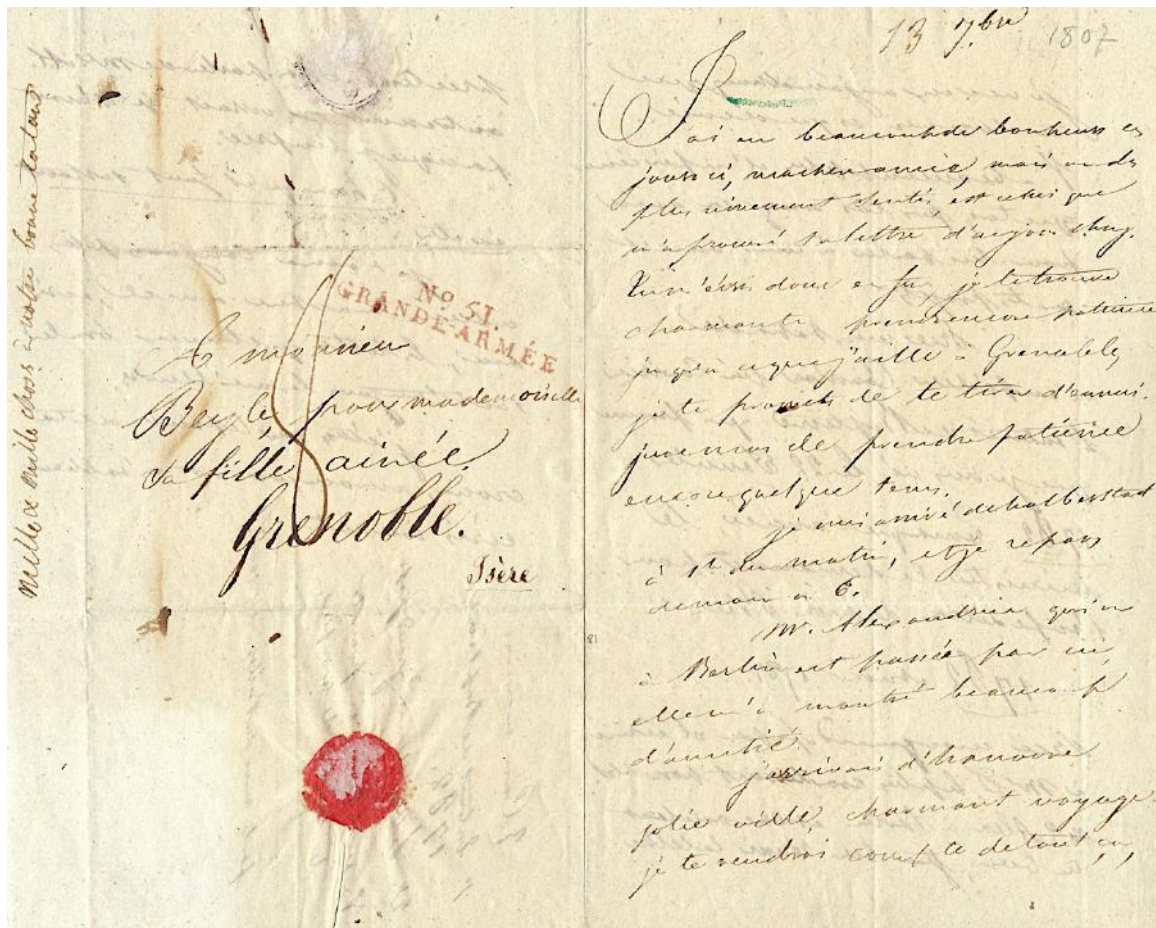 mille & mille choses à notre bonne tatan
No 51.
GRANDE-ARMÉE
A monsieur
Beyle, pour mademoiselle
sa fille ainée.
Grenoble.
Isère
8
13 7bre 1807
J'ai eu beaucoup de bonheur ces
jours ci, ma chere amie, mais un des
plus vivement sentis est celui que
m'a procuré ta lettre d'aujourd'huy.
Tu m'écris donc enfin je te trouve
charmante prends encore patience
jusqu'à ce que j'aille à Grenoble,
je te promets de te tirer d'ennui.
jure moi de prendre patience
encore quelque tems.
je suis arrivé de halberstadt
à 1h du matin, et je repars
demain à 6.
Me. Alexandrine qui va
à Berlin est passée par ici,
elle m'a montré beaucoup
d'amitié.
j'arrivais d'hanovre
jolie ville, charmant voyage.
je te rendrai compte de tout ça,
81